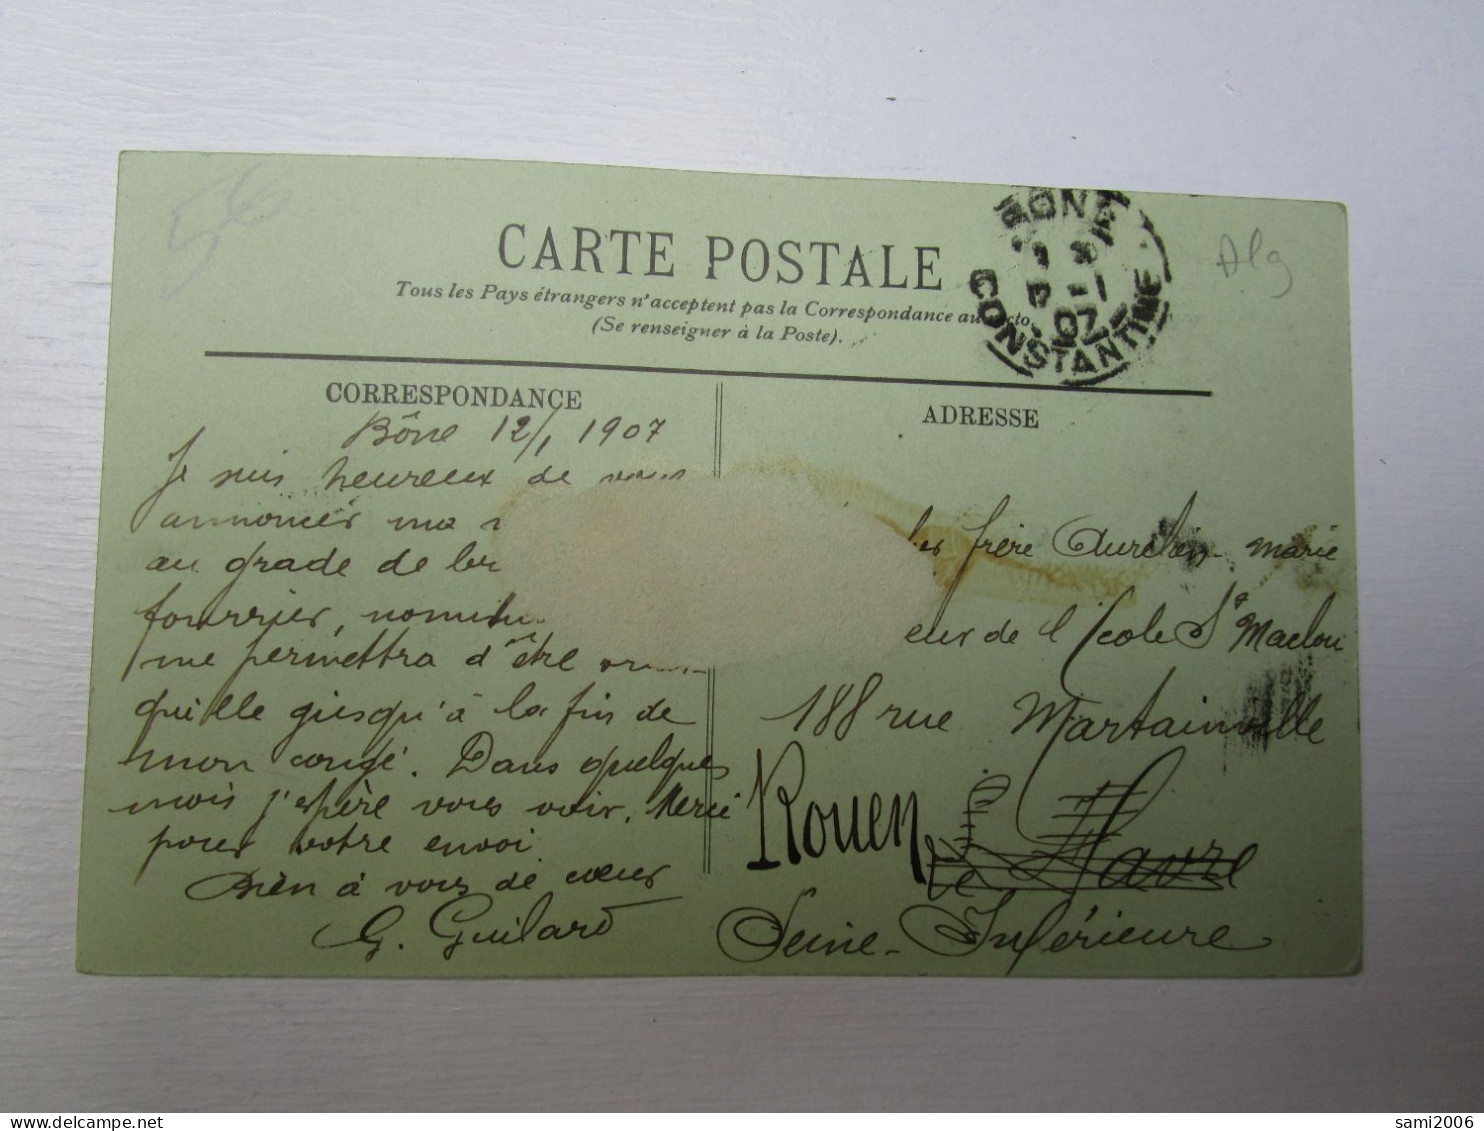 56
CARTE POSTALE
Tous les Pays étrangers n'acceptent pas la Correspondance au recto.
(Se renseigner à la Poste).
BONE
CONSTANTINE
07
Alg
CORRESPONDANCE
Bône 12/1 1907
Je suis heureux de vous
annoncer ma
au grade de
fourrier,
me permettra d'être
qu'ille jusqu'à la fin de
mon congé. Dans quelques
mois j'espère vous voir. Merci
pour votre envoi
Bien à vous de cœur
G. Guilard
ADRESSE
frère Aurélien-Marie
eur de l'École St Maclou
188 rue Martainville
Rouen
Le Havre
Seine-Inférieure
sami2006